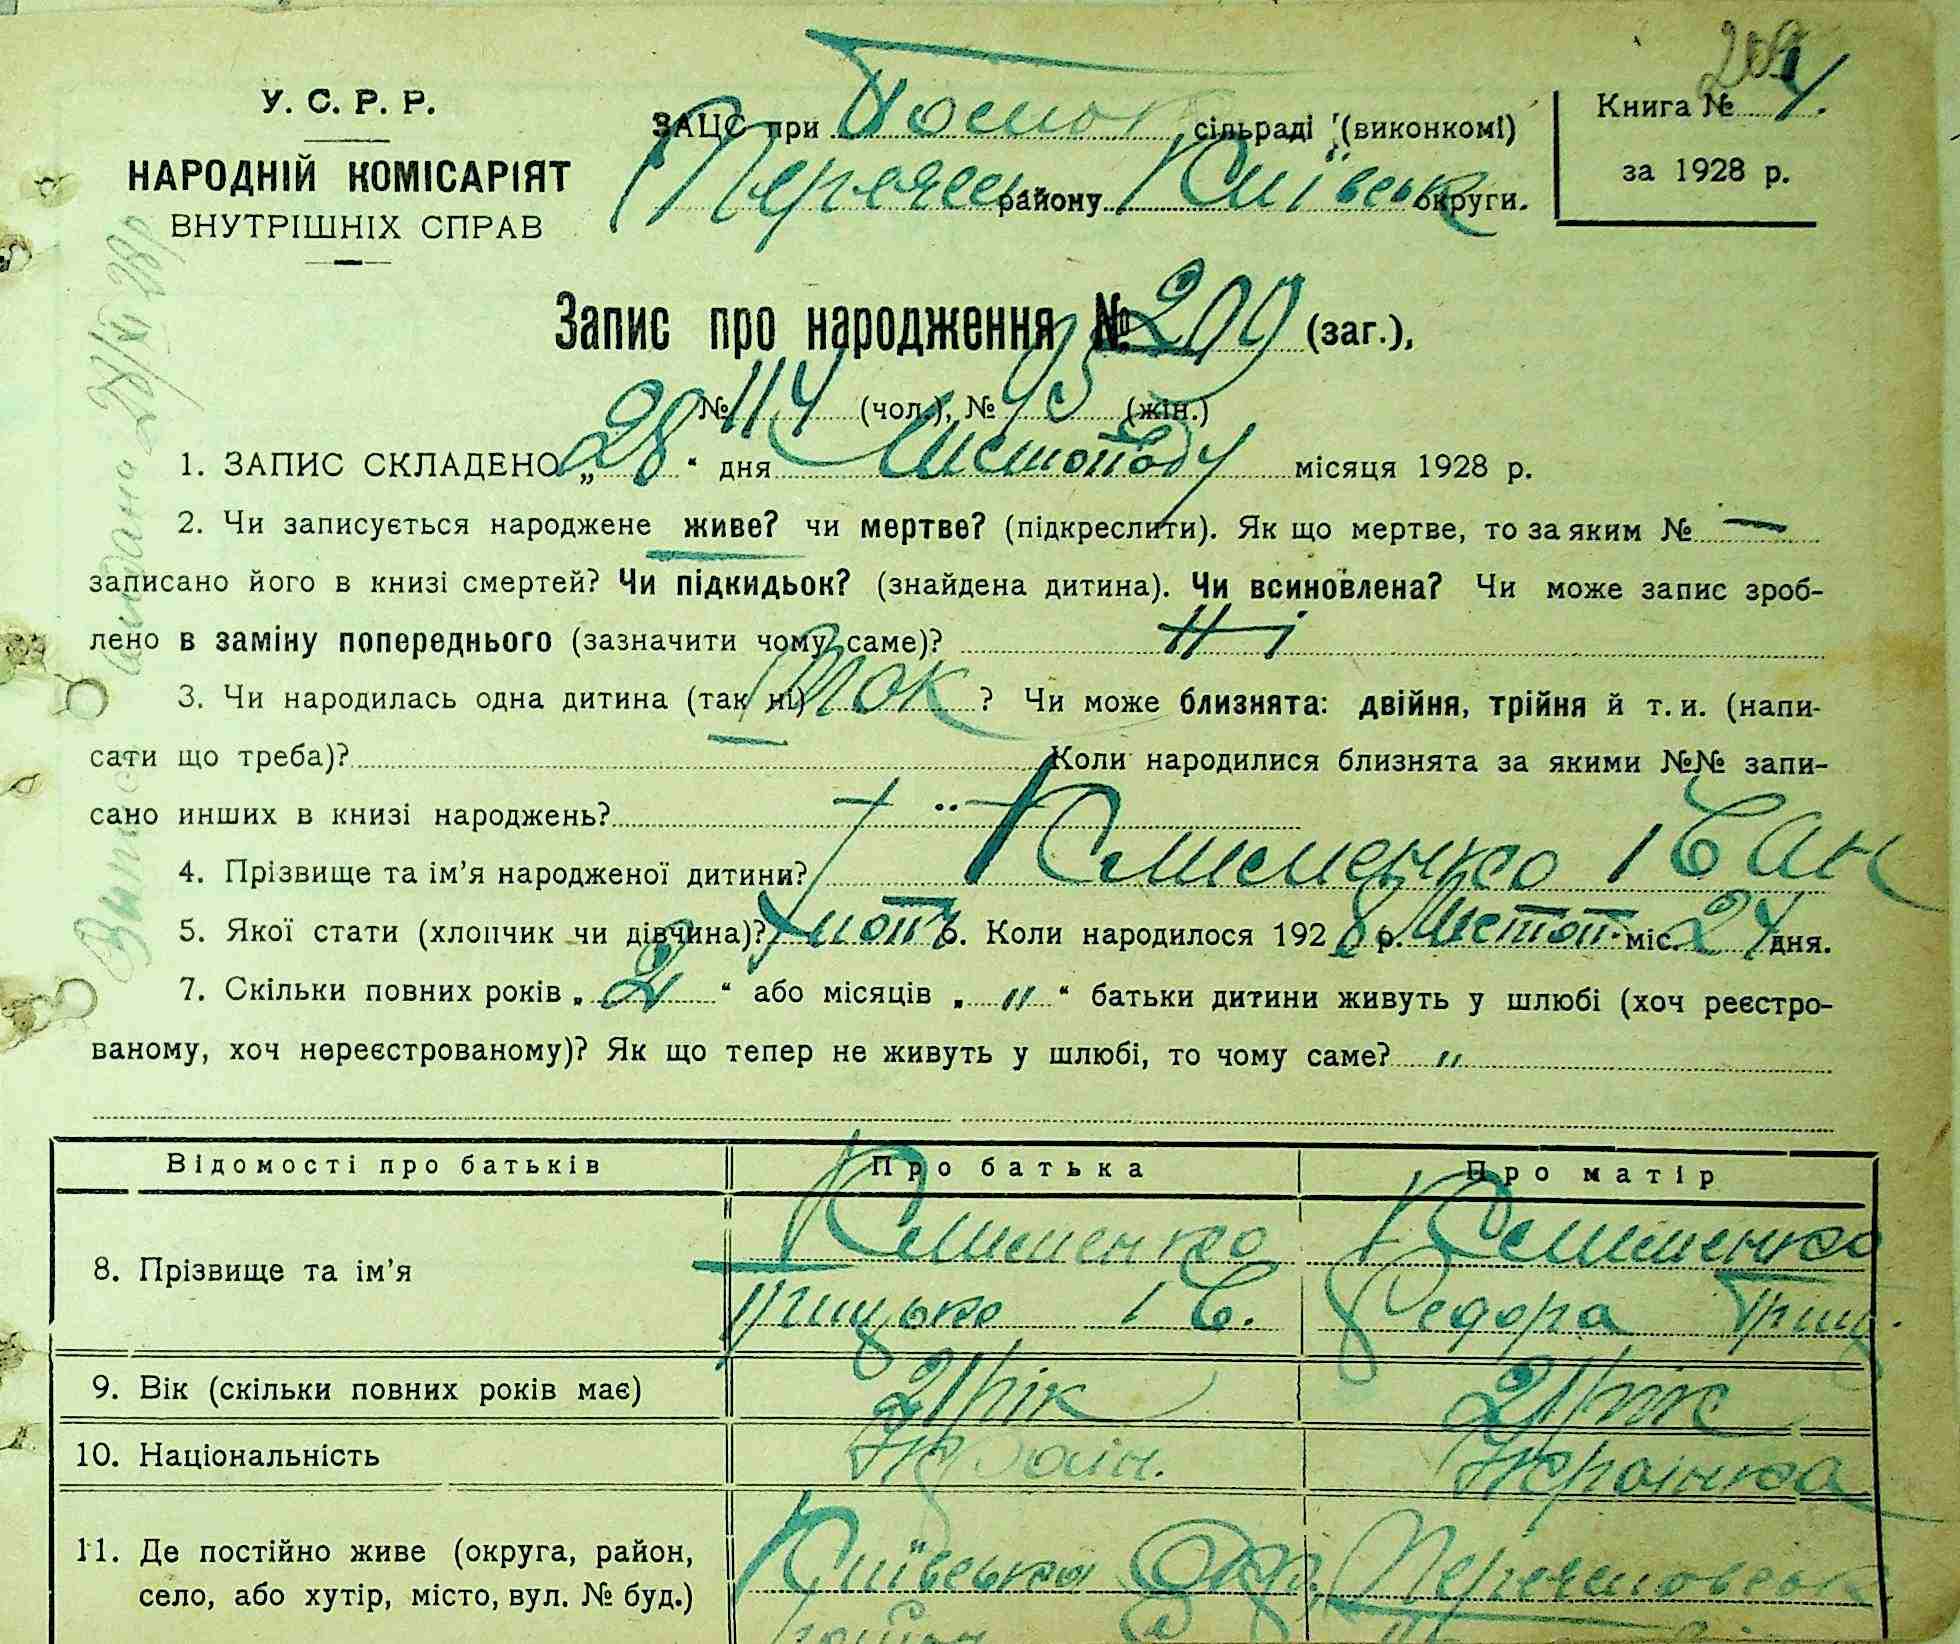 204
У. С. Р. Р.
НАРОДНІЙ КОМІСАРІЯТ
ВНУТРІШНІХ СПРАВ
ЗАЦС при сільраді (виконкомі)
району Київськ округи.
Книга № 4.
за 1928 р.
Запис про народження № 209 (заг.),
№ 114 (чол.), № 95 (жін.)
1. ЗАПИС СКЛАДЕНО „28“ дня Листопаду місяця 1928 р.
2. Чи записується народжене живе? чи мертве? (підкреслити). Як що мертве, то за яким № —
записано його в книзі смертей? Чи підкидьок? (знайдена дитина). Чи всиновлена? Чи може запис зроб-
лено в заміну попереднього (зазначити чому саме)? Ні
3. Чи народилась одна дитина (так ні) Так? Чи може близнята: двійня, трійня й т. и. (напи-
сати що треба)? Коли народилися близнята за якими №№ запи-
сано инших в книзі народжень?
4. Прізвище та ім’я народженої дитини? Клименко Іван
5. Якої стати (хлопчик чи дівчина)? хлопч 6. Коли народилося 1928 р. Листоп. міс. 24 дня.
7. Скільки повних років „2“ або місяців „ " “ батьки дитини живуть у шлюбі (хоч реєстро-
ваному, хоч нереєстрованому)? Як що тепер не живуть у шлюбі, то чому саме? "
Відомості про батьків Про батька Про матір
8. Прізвище та ім’я Клименко Грицько Ів. Клименко Федора Гриц.
9. Вік (скільки повних років має) 21 рік 21 рік
10. Національність Україн. Українка
11. Де постійно живе (округа, район,
село, або хутір, місто, вул. № буд.) Київська Окр.